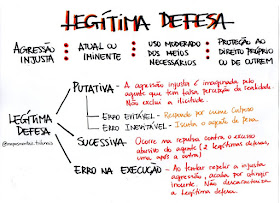 LEGÍTIMA DEFESA
AGRESSÃO
INJUSTA
ATUAL OU
IMINENTE
USO MODERADO
DOS MEIOS
NECESSÁRIOS
PROTEÇÃO AO
DIREITO PRÓPRIO
OU DE OUTREM
LEGÍTIMA
DEFESA
PUTATIVA - A agressão injusta é imaginada pelo
agente que tem falsa percepção da realidade.
Não exclui a ilicitude.
ERRO EVITÁVEL - Responde por crime Culposo
ERRO INEVITÁVEL - Isenta o agente de pena
SUCESSIVA - Ocorre na repulsa contra o excesso
abusivo do agente (2 legítimas defesas,
uma após a outra)
ERRO NA EXECUÇÃO - Ao tentar repelir a injusta
agressão, acaba por atingir
inocente. Não descaracteriza
a legítima defesa.